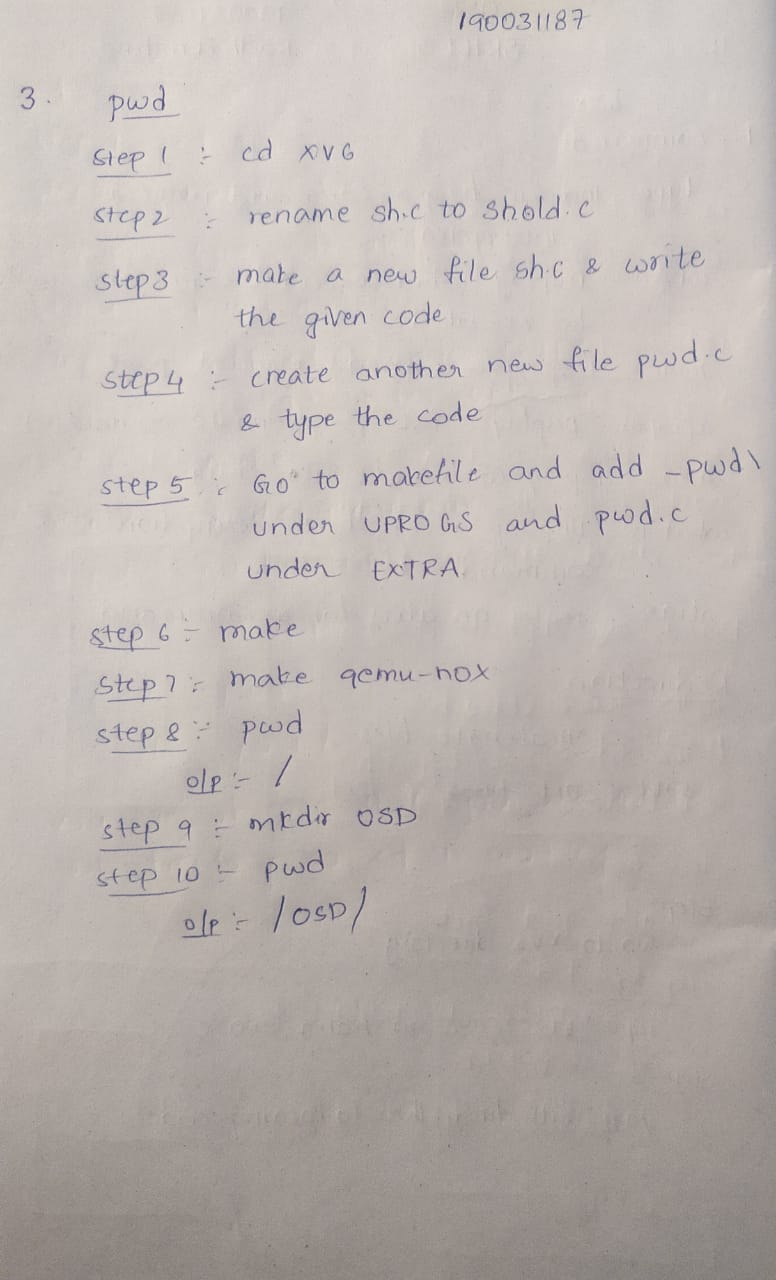 190031187
3. pwd
step 1 :- cd xv6
step 2 :- rename sh.c to shold.c
step 3 :- make a new file sh.c & write
the given code
step 4 :- create another new file pwd.c
& type the code
step 5 :- Go to makefile and add _pwd\
under UPROGS and pwd.c
under EXTRA.
step 6 :- make
step 7 :- make qemu-nox
step 8 :- pwd
o/p :- /
step 9 :- mkdir OSD
step 10 :- pwd
o/p :- /OSD/